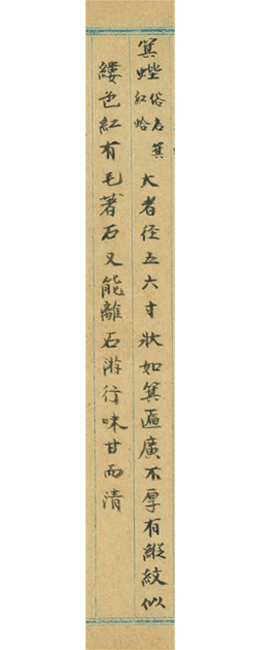 箕蟶俗名箕紅蛤大者徑五六寸狀如箕匾廣不厚有縱紋似
縷色紅有毛著石又能離石游行味甘而清